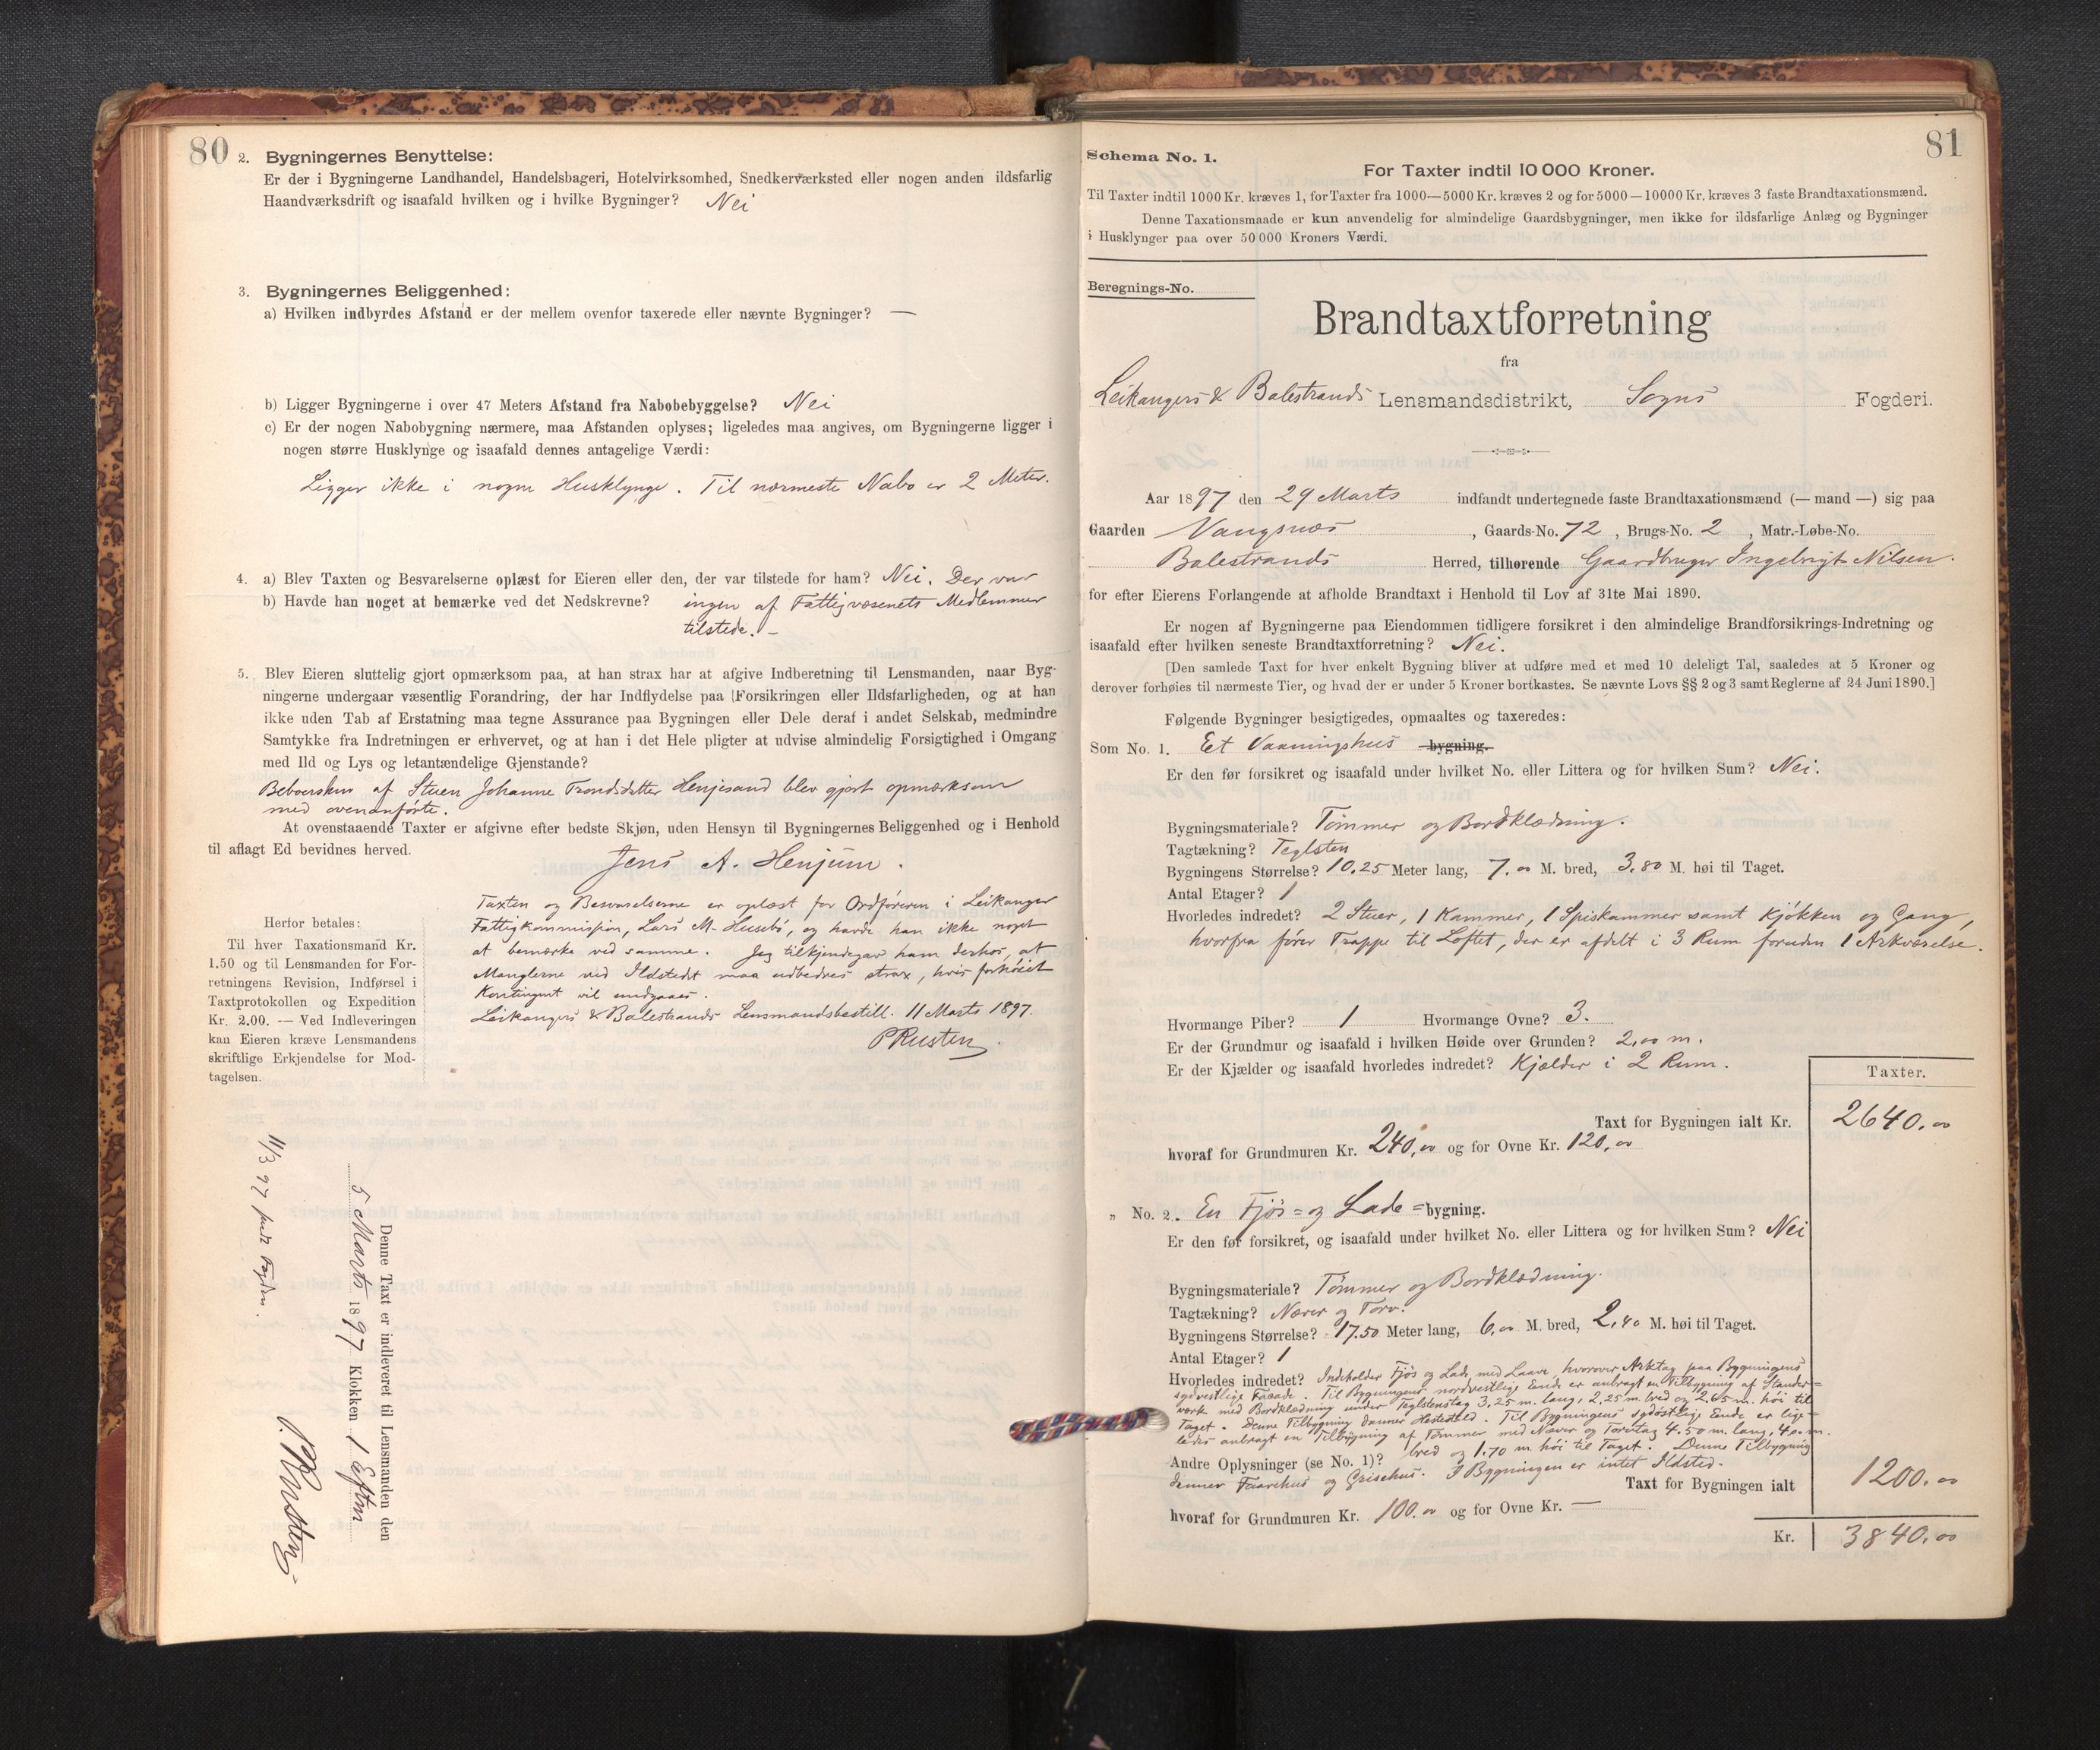 80
2. Bygningernes Benyttelse:
Er der i Bygningerne Landhandel, Handelsbageri, Hotelvirksomhed, Snedkerværksted eller nogen anden ildsfarlig
Haandværksdrift og isaafald hvilken og i hvilke Bygninger? Nei
3. Bygningernes Beliggenhed:
a) Hvilken indbyrdes Afstand er der mellem ovenfor taxerede eller nævnte Bygninger? —
b) Ligger Bygningerne i over 47 Meters Afstand fra Nabobebyggelse? Nei
c) Er der nogen Nabobygning nærmere, maa Afstanden oplyses; ligeledes maa angives, om Bygningerne ligger i
nogen større Husklynge og isaafald dennes antagelige Værdi:
Ligger ikke i nogen Husklynge. Til nærmeste Nabo er 2 Meter.
4. a) Blev Taxten og Besvarelserne oplæst for Eieren eller den, der var tilstede for ham? Nei. Der var
b) Havde han noget at bemærke ved det Nedskrevne? ingen af Fattigvæsenets Medlemmer
tilstede. —
5. Blev Eieren sluttelig gjort opmærksom paa, at han strax har at afgive Indberetning til Lensmanden, naar Byg-
ningerne undergaar væsentlig Forandring, der har Indflydelse paa Forsikringen eller Ildsfarligheden, og at han
ikke uden Tab af Erstatning maa tegne Assurance paa Bygningen eller Dele deraf i andet Selskab, medmindre
Samtykke fra Indretningen er erhvervet, og at han i det Hele pligter at udvise almindelig Forsigtighed i Omgang
med Ild og Lys og letantændelige Gjenstande?
Beboersken af Stuen Johanne Trondsdatter Henjesand blev gjort opmærksom
med ovenanførte.
At ovenstaaende Taxter er afgivne efter bedste Skjøn, uden Hensyn til Bygningernes Beliggenhed og i Henhold
til aflagt Ed bevidnes herved.
Jens A. Henjum.
Taxten og Besvarelserne er oplæst for Ordføreren i Leikanger
Fattigkommission, Lars M. Husebø, og havde han ikke noget
at bemærke ved samme. Jeg tilkjendegav ham derhos, at
Manglerne ved Ildstedet maa udbedres strax, hvis forhøiet
Kontingent vil undgaaes.
Leikangers & Balestrands Lensmandsbestill. 11 Marts 1897.
P Rusten
Herfor betales:
Til hver Taxationsmand Kr.
1.50 og til Lensmanden for For-
retningens Revision, Indførsel i
Taxtprotokollen og Expedition
Kr. 2.00. — Ved Indleveringen
kan Eieren kræve Lensmandens
skriftlige Erkjendelse for Mod-
tagelsen.
Denne Taxt er indleveret til Lensmanden den
5 Marts 1897 Klokken 1 Eftm
P. Rusten
11/3 97 sendt Fogden.
81
Schema No. 1.
For Taxter indtil 10 000 Kroner.
Til Taxter indtil 1000 Kr. kræves 1, for Taxter fra 1000—5000 Kr. kræves 2 og for 5000—10000 Kr. kræves 3 faste Brandtaxationsmænd.
Denne Taxationsmaade er kun anvendelig for almindelige Gaardsbygninger, men ikke for ildsfarlige Anlæg og Bygninger
i Husklynger paa over 50 000 Kroners Værdi.
Beregnings-No.
Brandtaxtforretning
fra
Leikangers & Balestrands Lensmandsdistrikt, Sogns Fogderi.
Aar 1897 den 29 Marts indfandt undertegnede faste Brandtaxationsmænd (— mand —) sig paa
Gaarden Vangsnæs, Gaards-No. 72, Brugs-No. 2, Matr.-Løbe-No.
Balestrands Herred, tilhørende Gaardbruger Ingebrigt Nilsen.
for efter Eierens Forlangende at afholde Brandtaxt i Henhold til Lov af 31te Mai 1890.
Er nogen af Bygningerne paa Eiendommen tidligere forsikret i den almindelige Brandforsikrings-Indretning og
isaafald efter hvilken seneste Brandtaxtforretning? Nei.
[Den samlede Taxt for hver enkelt Bygning bliver at udføre med et med 10 deleligt Tal, saaledes at 5 Kroner og
derover forhøies til nærmeste Tier, og hvad der er under 5 Kroner bortkastes. Se nævnte Lovs §§ 2 og 3 samt Reglerne af 24 Juni 1890.]
Følgende Bygninger besigtigedes, opmaaltes og taxeredes:
Som No. 1. Et Vaaningshus bygning.
Er den før forsikret og isaafald under hvilket No. eller Littera og for hvilken Sum? Nei.
Bygningsmateriale? Tømmer og Bordklædning.
Tagtækning? Teglsten
Bygningens Størrelse? 10.25 Meter lang, 7.00 M. bred, 3.80 M. høi til Taget.
Antal Etager? 1
Hvorledes indredet? 2 Stuer, 1 Kammer, 1 Spiskammer samt Kjøkken og Gang,
hvorfra fører Trappe til Loftet, der er afdelt i 3 Rum foruden 1 Arkværelse.
Hvormange Piber? 1 Hvormange Ovne? 3.
Er der Grundmur og isaafald i hvilken Høide over Grunden? 2,00 m.
Er der Kjælder og isaafald hvorledes indredet? Kjælder i 2 Rum.
Taxter.
Taxt for Bygningen ialt Kr. 2640.00
hvoraf for Grundmuren Kr. 240,00 og for Ovne Kr. 120,00
„ No. 2. En Fjøs= og Lade =bygning.
Er den før forsikret, og isaafald under hvilket No. eller Littera og for hvilken Sum? Nei
Bygningsmateriale? Tømmer og Bordklædning.
Tagtækning? Næver og Torv.
Bygningens Størrelse? 17.50 Meter lang, 6,00 M. bred, 2,40 M. høi til Taget.
Antal Etager? 1
Hvorledes indredet? Indeholder Fjøs og Lade med Laave, hvorover Arktag paa Bygningens
sydvestlige Facade. Til Bygningens nordvestlige Ende er anbragt en Tilbygning af Stander=
værk med Bordklædning under Teglstenstag 3,25 m. lang, 2,25 m. bred og 2,65 m. høi til
Taget. Denne Tilbygning danner Hestestald. Til Bygningens sydøstlige Ende er lige=
ledes anbragt en Tilbygning af Tømmer med Næver og Torvtag 4.50 m. lang, 4,00 m.
bred og 1.70 m. høi til Taget. Denne Tilbygning
Andre Oplysninger (se No. 1)?
danner Faarehus og Grisehus. I Bygningen er intet Ildsted.
Taxt for Bygningen ialt 1200.00
hvoraf for Grundmuren Kr. 100.00 og for Ovne Kr. —
Kr. 3840.00